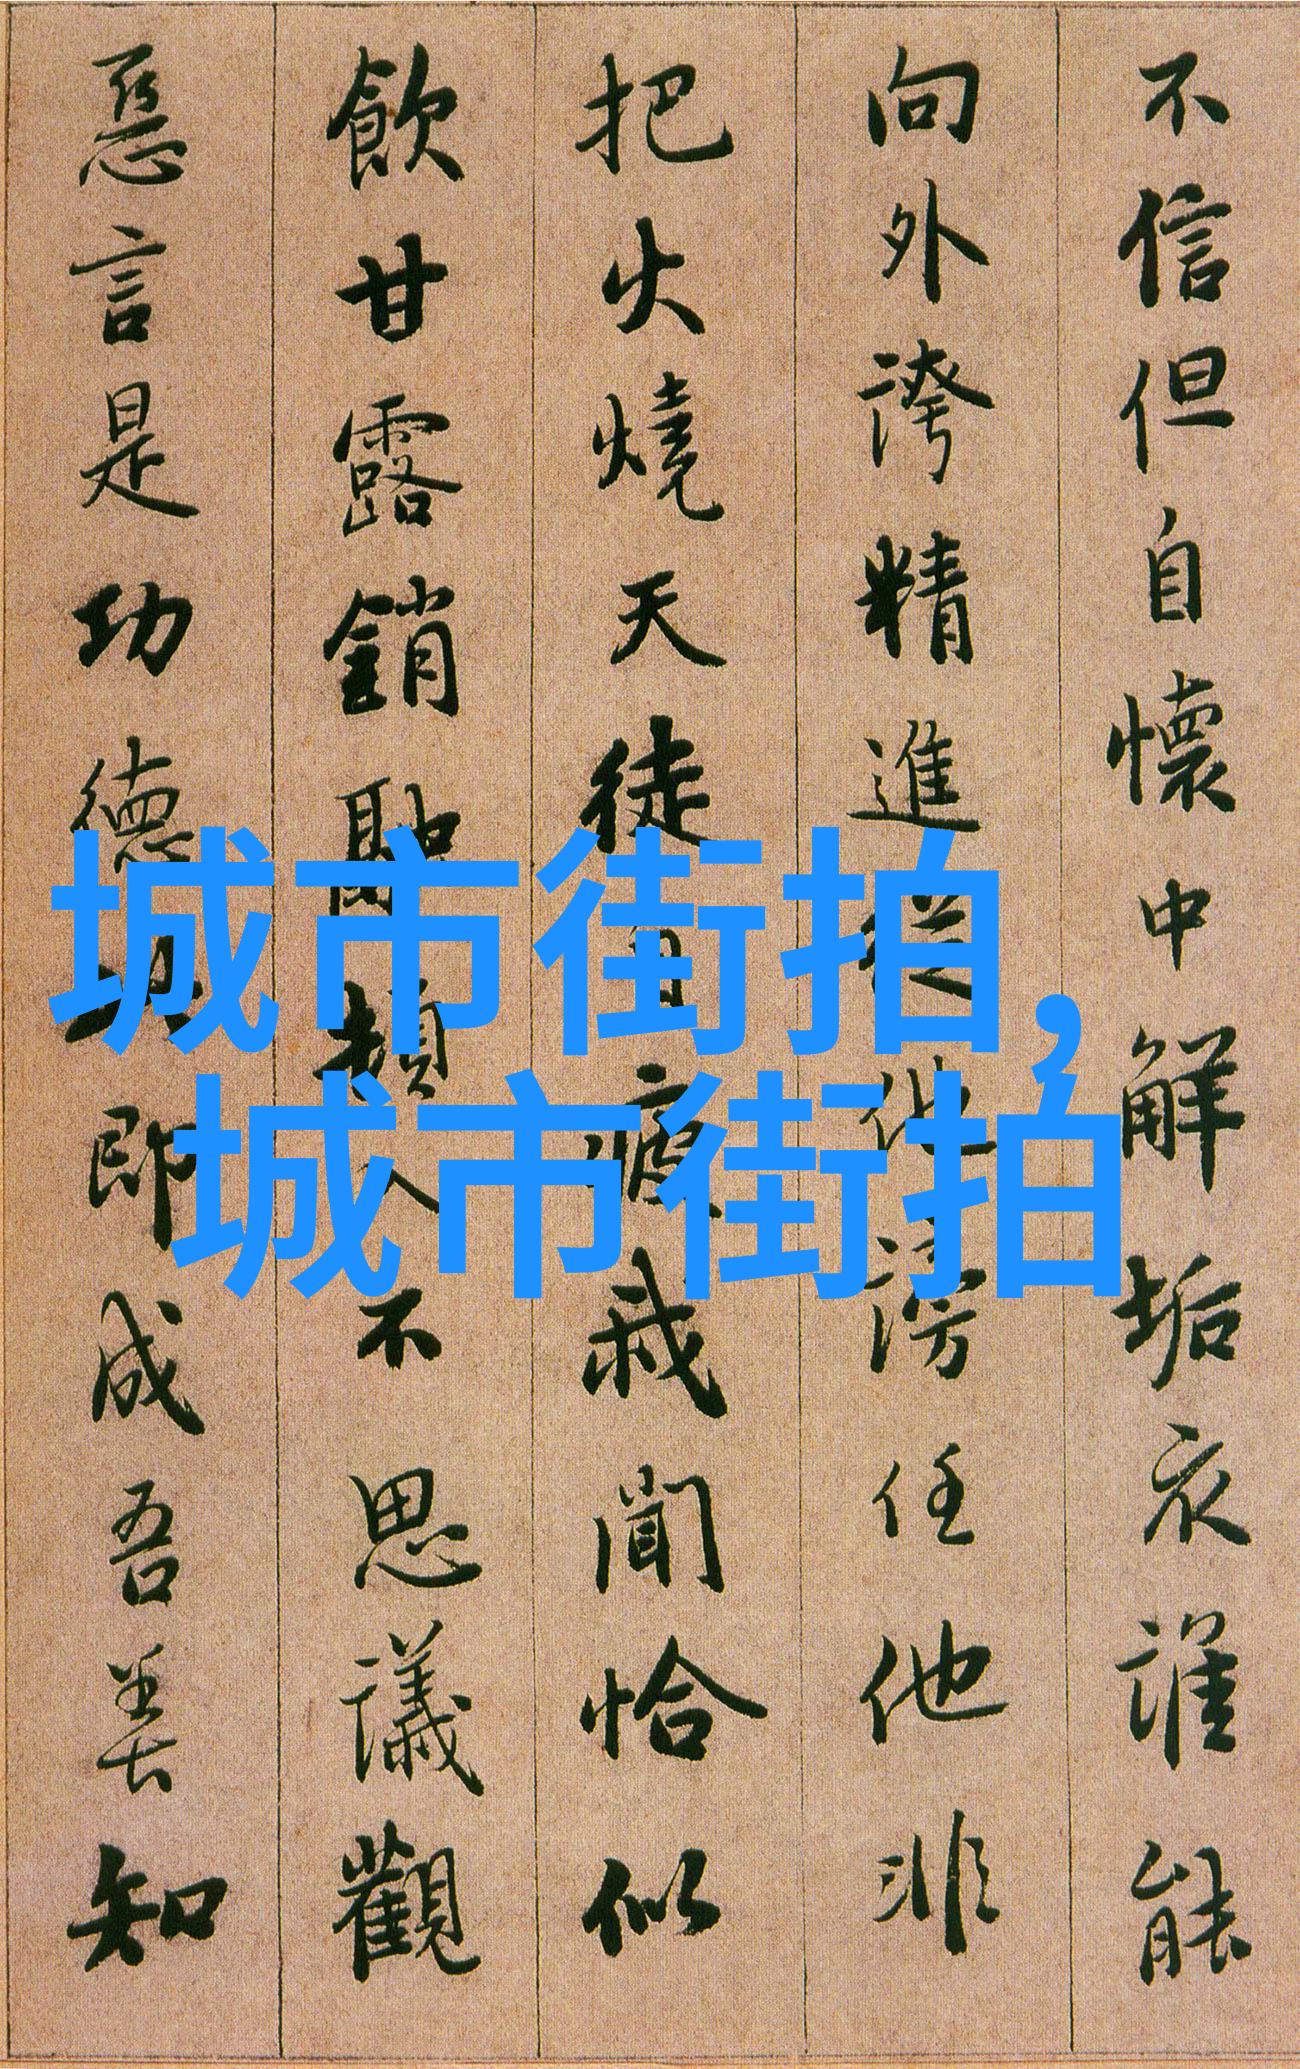 不信但自懷中解垢衣誰能
向外誇精進從他謗任他非
把火燒天徒自疲我聞恰似
飲甘露銷融頓入不思議觀
惡言是功德此即成吾善知
城市街拍,
城市街拍